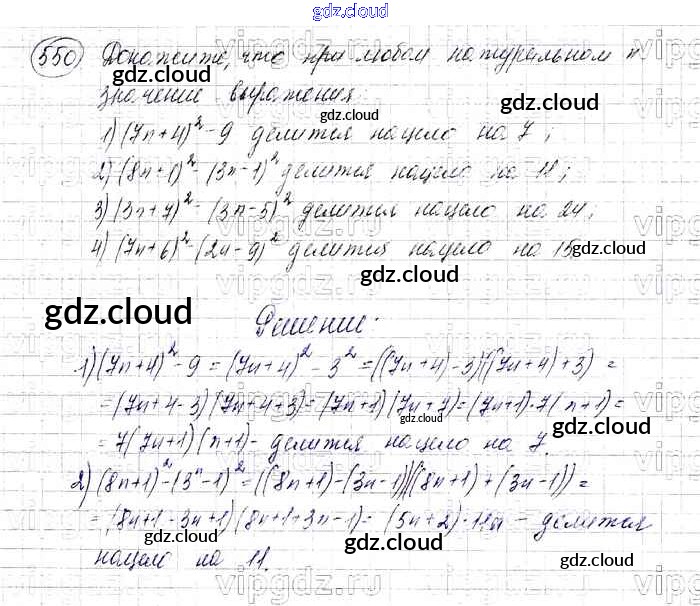 gdz.cloud
550) Докажите, что при любом натуральном n
значение выражения:
1) (7n+4)² - 9 делится нацело на 7;
2) (8n+1)² - (3n-1)² делится нацело на 11;
3) (3n+7)² - (3n-5)² делится нацело на 24;
4) (7n+6)² - (2n-9)² делится нацело на 15.
Решение:
1) (7n+4)² - 9 = (7n+4)² - 3² = ((7n+4)-3)((7n+4)+3) =
= (7n+4-3)(7n+4+3) = (7n+1)(7n+7) = (7n+1)·7(n+1) =
= 7(7n+1)(n+1) - делится нацело на 7.
2) (8n+1)² - (3ⁿ-1)² = ((8n+1)-(3n-1))((8n+1)+(3n-1)) =
= (8n+1-3n+1)(8n+1+3n-1) = (5n+2)·11n - делится
нацело на 11.